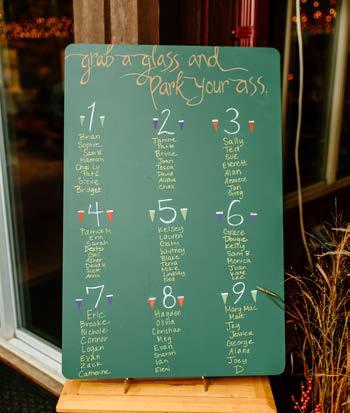 grab a glass and
park your ass.
1
Brian
Sophie
Sam K
Hannah
Pate
Steve
Bridget
2
Janine
Bruce
Joan
Tessa
David
Alisha
Chas
3
Sally
Ted
Sue
Everett
Alan
Annette
Jan
Greg
4
Patrick M
Erin
Sarah
Dexter
Asher
David H
Scott
Anna
5
Kelsey
Lauren
Cam
Whitney
Blake
Terra
Mike
Lindsay
Ned
6
Grace
Dougie
Kelly
Sam B.
Monica
Juan
Kate
Lee
7
Eric
Brooke
Nichole
Connor
Logan
Evan
Zack
Catherine
8
Hayden
Olivia
Christian
Meg
Evan
Sharon
Ian
Eleni
9
Mary Mac
Matt
Jay
Jessica
George
Alana
Joey
D